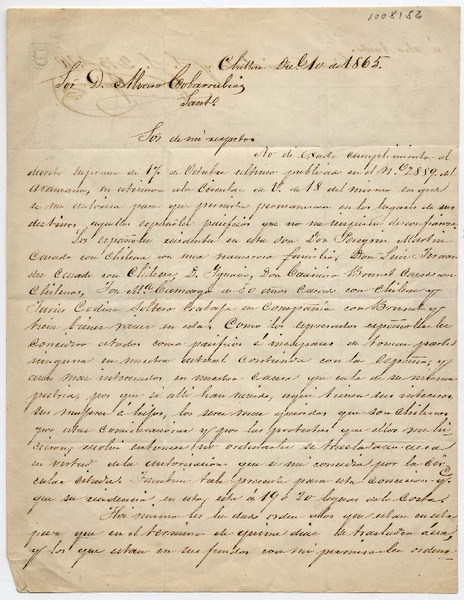 1008152
Chillan Dice 10 de 1865.
Sor D. Alvaro Cobarrubias
Santo
Sor de mi respeto
No de dado cumplimiento al
decreto supremo de 17 de Octubre ultimo publicado en el N.º 2889 del
Araucano, en a la Circular de V. de 18 del mismo en que
se me autoriza para que permita permanezcan en los lugares de sus
destinos, aquellos españoles pacificos que no me inspiren desconfianza.
Los españoles residentes en esta son Don Martin
Casado con Chilena con una numerosa familia, Don Luis Fernan
dez Casado con Chilena, D. Ignacio, Don Casimiro Brunet Casado con
Chilenas, Don Ml. Camargo de 60 años Casado con Chilena y
Javier Codina Soltero trabaja en Compañia con Brunet y
tiene bienes raices en esta. Como los espresados españoles les
considero como pacificos é incapaces de tomar parte
ninguna en nuestra actual contienda con la España, y
aun mas interesados en nuestra causa que en la de su misma
patria, por que si alli han nacido, aqui tienen sus intereses
sus mujeres é hijos, los seres mas queridos que son chilenos
por estas consideraciones y por las protestas que ellos me hi-
cieron, resolvi entonces no ordenarles se trasladaran acia
en virtud de la autorizacion que se me concedia por la Cir
cular citada. Tambien tube presente para esta Concesion
que su residencia en esta, esta á 19 o 20 leguas de la Costa.
Hoi mismo les he dado orden a los que estan en esta
para que en el termino de quince dias se trasladen acia,
y los que estan en sus fundos con mi permiso les ordeno